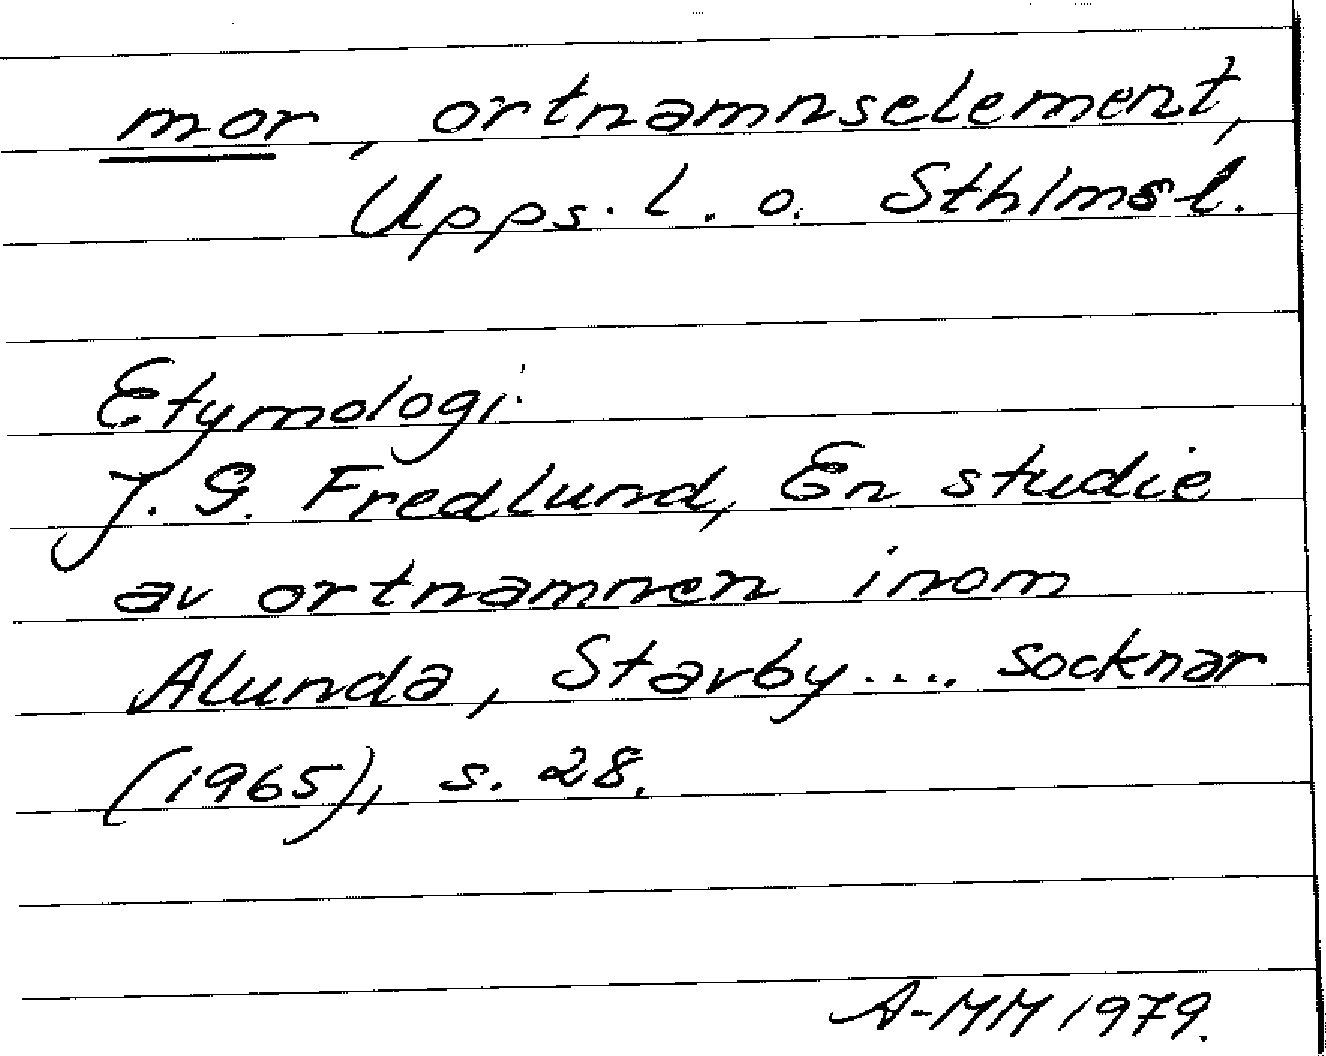 mor, ortnamnselement,
Upps. l. o. Sthlms l.
Etymologi:
J. G. Fredlund, En studie
av ortnamnen inom
Alunda, Starby.... socknar
(1965), s. 28.
A-MM 1979.